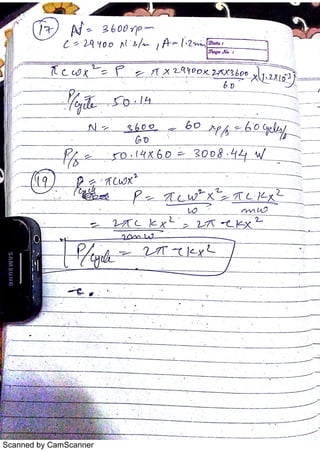 (17) N = 3600 rpm
C = 29400 N s/m , A = 1.2mm
Date :
Page No :
πcωx² = P = π × 29400 × 2π×3600/60 × (1.2×10⁻³)²
P/cycle = 50.14
N = 3600/60 = 60 rp/s = 60 cycles/s
P/s = 50.14×60 = 3008.44 W
(19) P/cycle = πcωx²
P = πcω²x²/ω = πckx²/mω
= 2πc kx²/2mω = 2π ζkx²
P/cycle = 2π ζkx²
SAMSUNG
Scanned by CamScanner